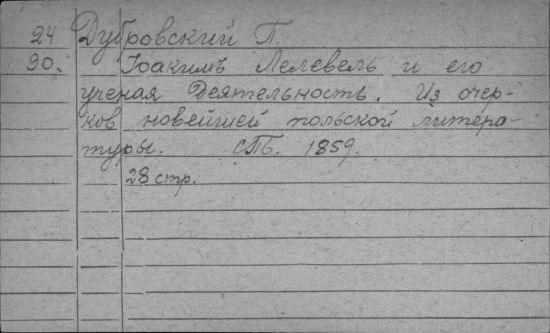 24 Дубровский П.
90. Іоакимъ Лелевель и его
ученая деятельность. Из очер-
ков новейшей польской литера-
туры. СПб. 1859.
28 стр.